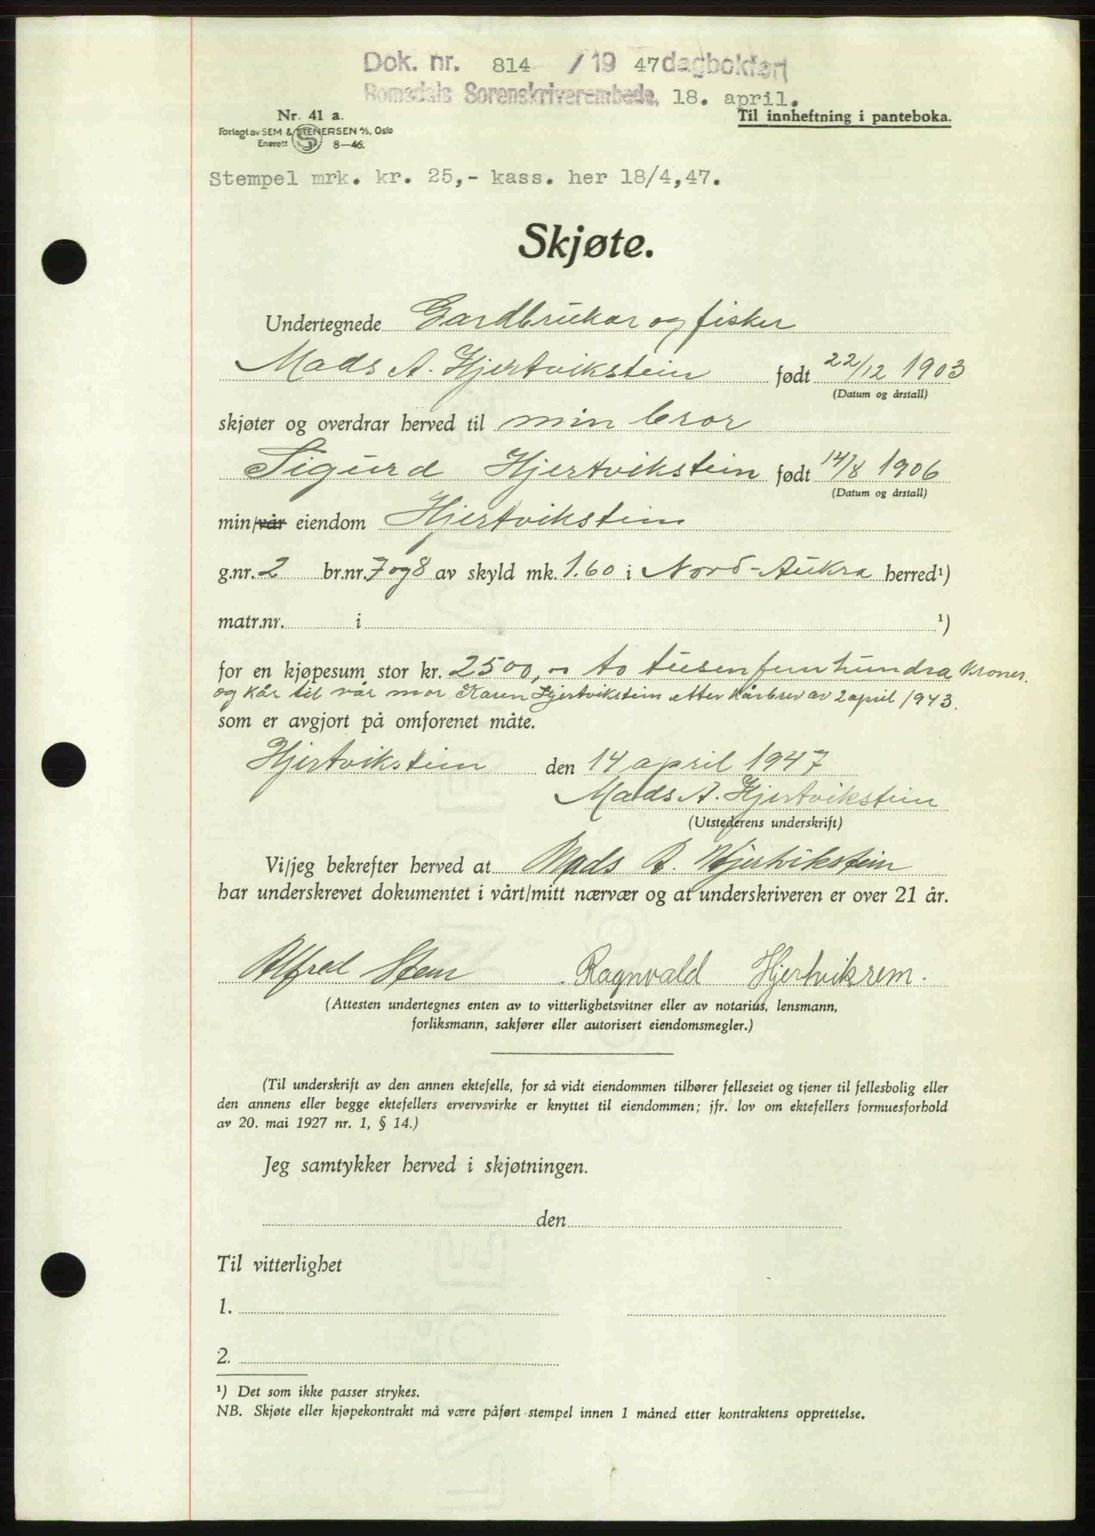 Dok. nr. 814 /19 47 dagbokført
Romsdals Sorenskriverembede, 18. april.
Nr. 41 a.
Til innheftning i panteboka.
Forlagt av SEM & STENERSEN A/S, Oslo
Enerett 8-46.
Stempel mrk. kr. 25,- kass. her 18/4,47.
Skjøte.
Undertegnede Gardbrukar og fisker
Mads A. Hjertvikstein født 22/12 1903
(Datum og årstall)
skjøter og overdrar herved til min bror
Sigurd Hjertvikstein født 14/8 1906
(Datum og årstall)
min/vår eiendom Hjertvikstein
g.nr. 2 br.nr. 7 og 8 av skyld mk. 1.60 i Nord-Aukra herred¹)
matr.nr. i ¹)
for en kjøpesum stor kr. 2500,- to tusenfemhundra kroner.
og kår til vår mor Karen Hjertvikstein etter kårbrev av 2 april 1943.
som er avgjort på omforenet måte.
Hjertvikstein den 14 april 1947
Mads A. Hjertvikstein
(Utstederens underskrift)
Vi/jeg bekrefter herved at Mads A. Hjertvikstein
har underskrevet dokumentet i vårt/mitt nærvær og at underskriveren er over 21 år.
Alfred Stem Ragnvald Hjertviksrem.
(Attesten undertegnes enten av to vitterlighetsvitner eller av notarius, lensmann,
forliksmann, sakfører eller autorisert eiendomsmegler.)
(Til underskrift av den annen ektefelle, for så vidt eiendommen tilhører felleseiet og tjener til fellesbolig eller
den annens eller begge ektefellers ervervsvirke er knyttet til eiendommen; jfr. lov om ektefellers formuesforhold
av 20. mai 1927 nr. 1, § 14.)
Jeg samtykker herved i skjøtningen.
den
Til vitterlighet
1.
2.
¹) Det som ikke passer strykes.
NB. Skjøte eller kjøpekontrakt må være påført stempel innen 1 måned etter kontraktens opprettelse.